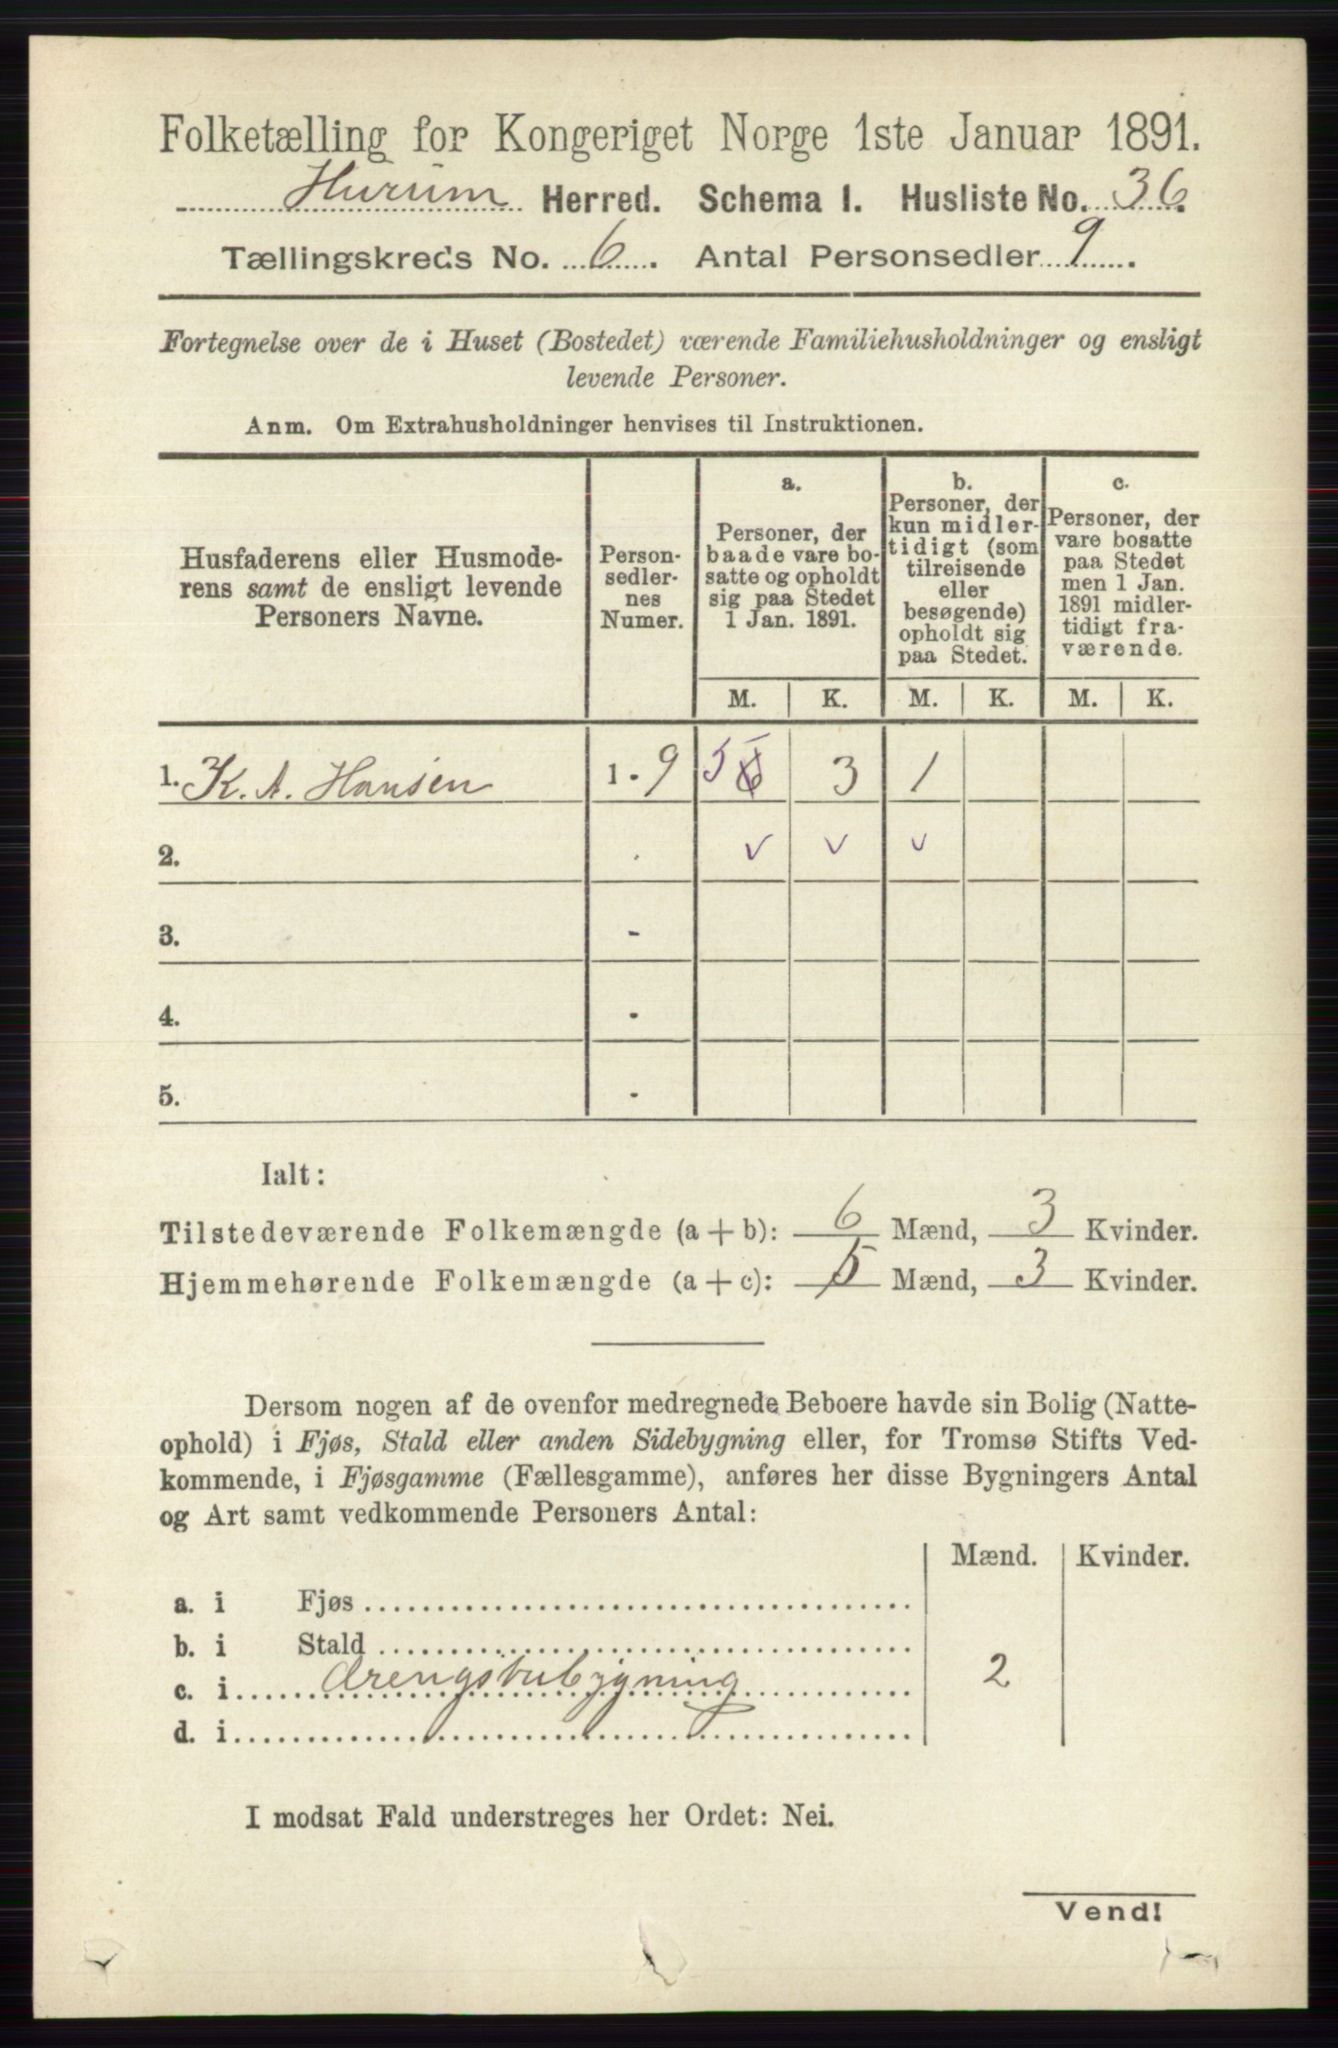 Folketælling for Kongeriget Norge 1ste Januar 1891.
Hurum Herred. Schema I. Husliste No. 36.
Tællingskreds No. 6. Antal Personsedler 9.
Fortegnelse over de i Huset (Bostedet) værende Familiehusholdninger og ensligt
levende Personer.
Anm. Om Extrahusholdninger henvises til Instruktionen.
Husfaderens eller Husmode-
rens samt de ensligt levende
Personers Navne.
Person-
sedler-
nes
Numer.
a.
Personer, der
baade vare bo-
satte og opholdt
sig paa Stedet
1 Jan. 1891.
b.
Personer, der
kun midler-
tidigt (som
tilreisende
eller
besøgende)
opholdt sig
paa Stedet.
c.
Personer, der
vare bosatte
paa Stedet
men 1 Jan.
1891 midler-
tidigt fra-
værende.
M. K. M. K. M. K.
1. K. A. Hansen 1-9 5 6 3 1
2. v v v
3. -
4. -
5. -
Ialt:
Tilstedeværende Folkemængde (a + b): 6 Mænd, 3 Kvinder.
Hjemmehørende Folkemængde (a + c): 5 Mænd, 3 Kvinder.
Dersom nogen af de ovenfor medregnede Beboere havde sin Bolig (Natte-
ophold) i Fjøs, Stald eller anden Sidebygning eller, for Tromsø Stifts Ved-
kommende, i Fjøsgamme (Fællesgamme), anføres her disse Bygningers Antal
og Art samt vedkommende Personers Antal:
Mænd. Kvinder.
a. i Fjøs
b. i Stald
c. i drengstubygning 2
d. i
I modsat Fald understreges her Ordet: Nei.
Vend!